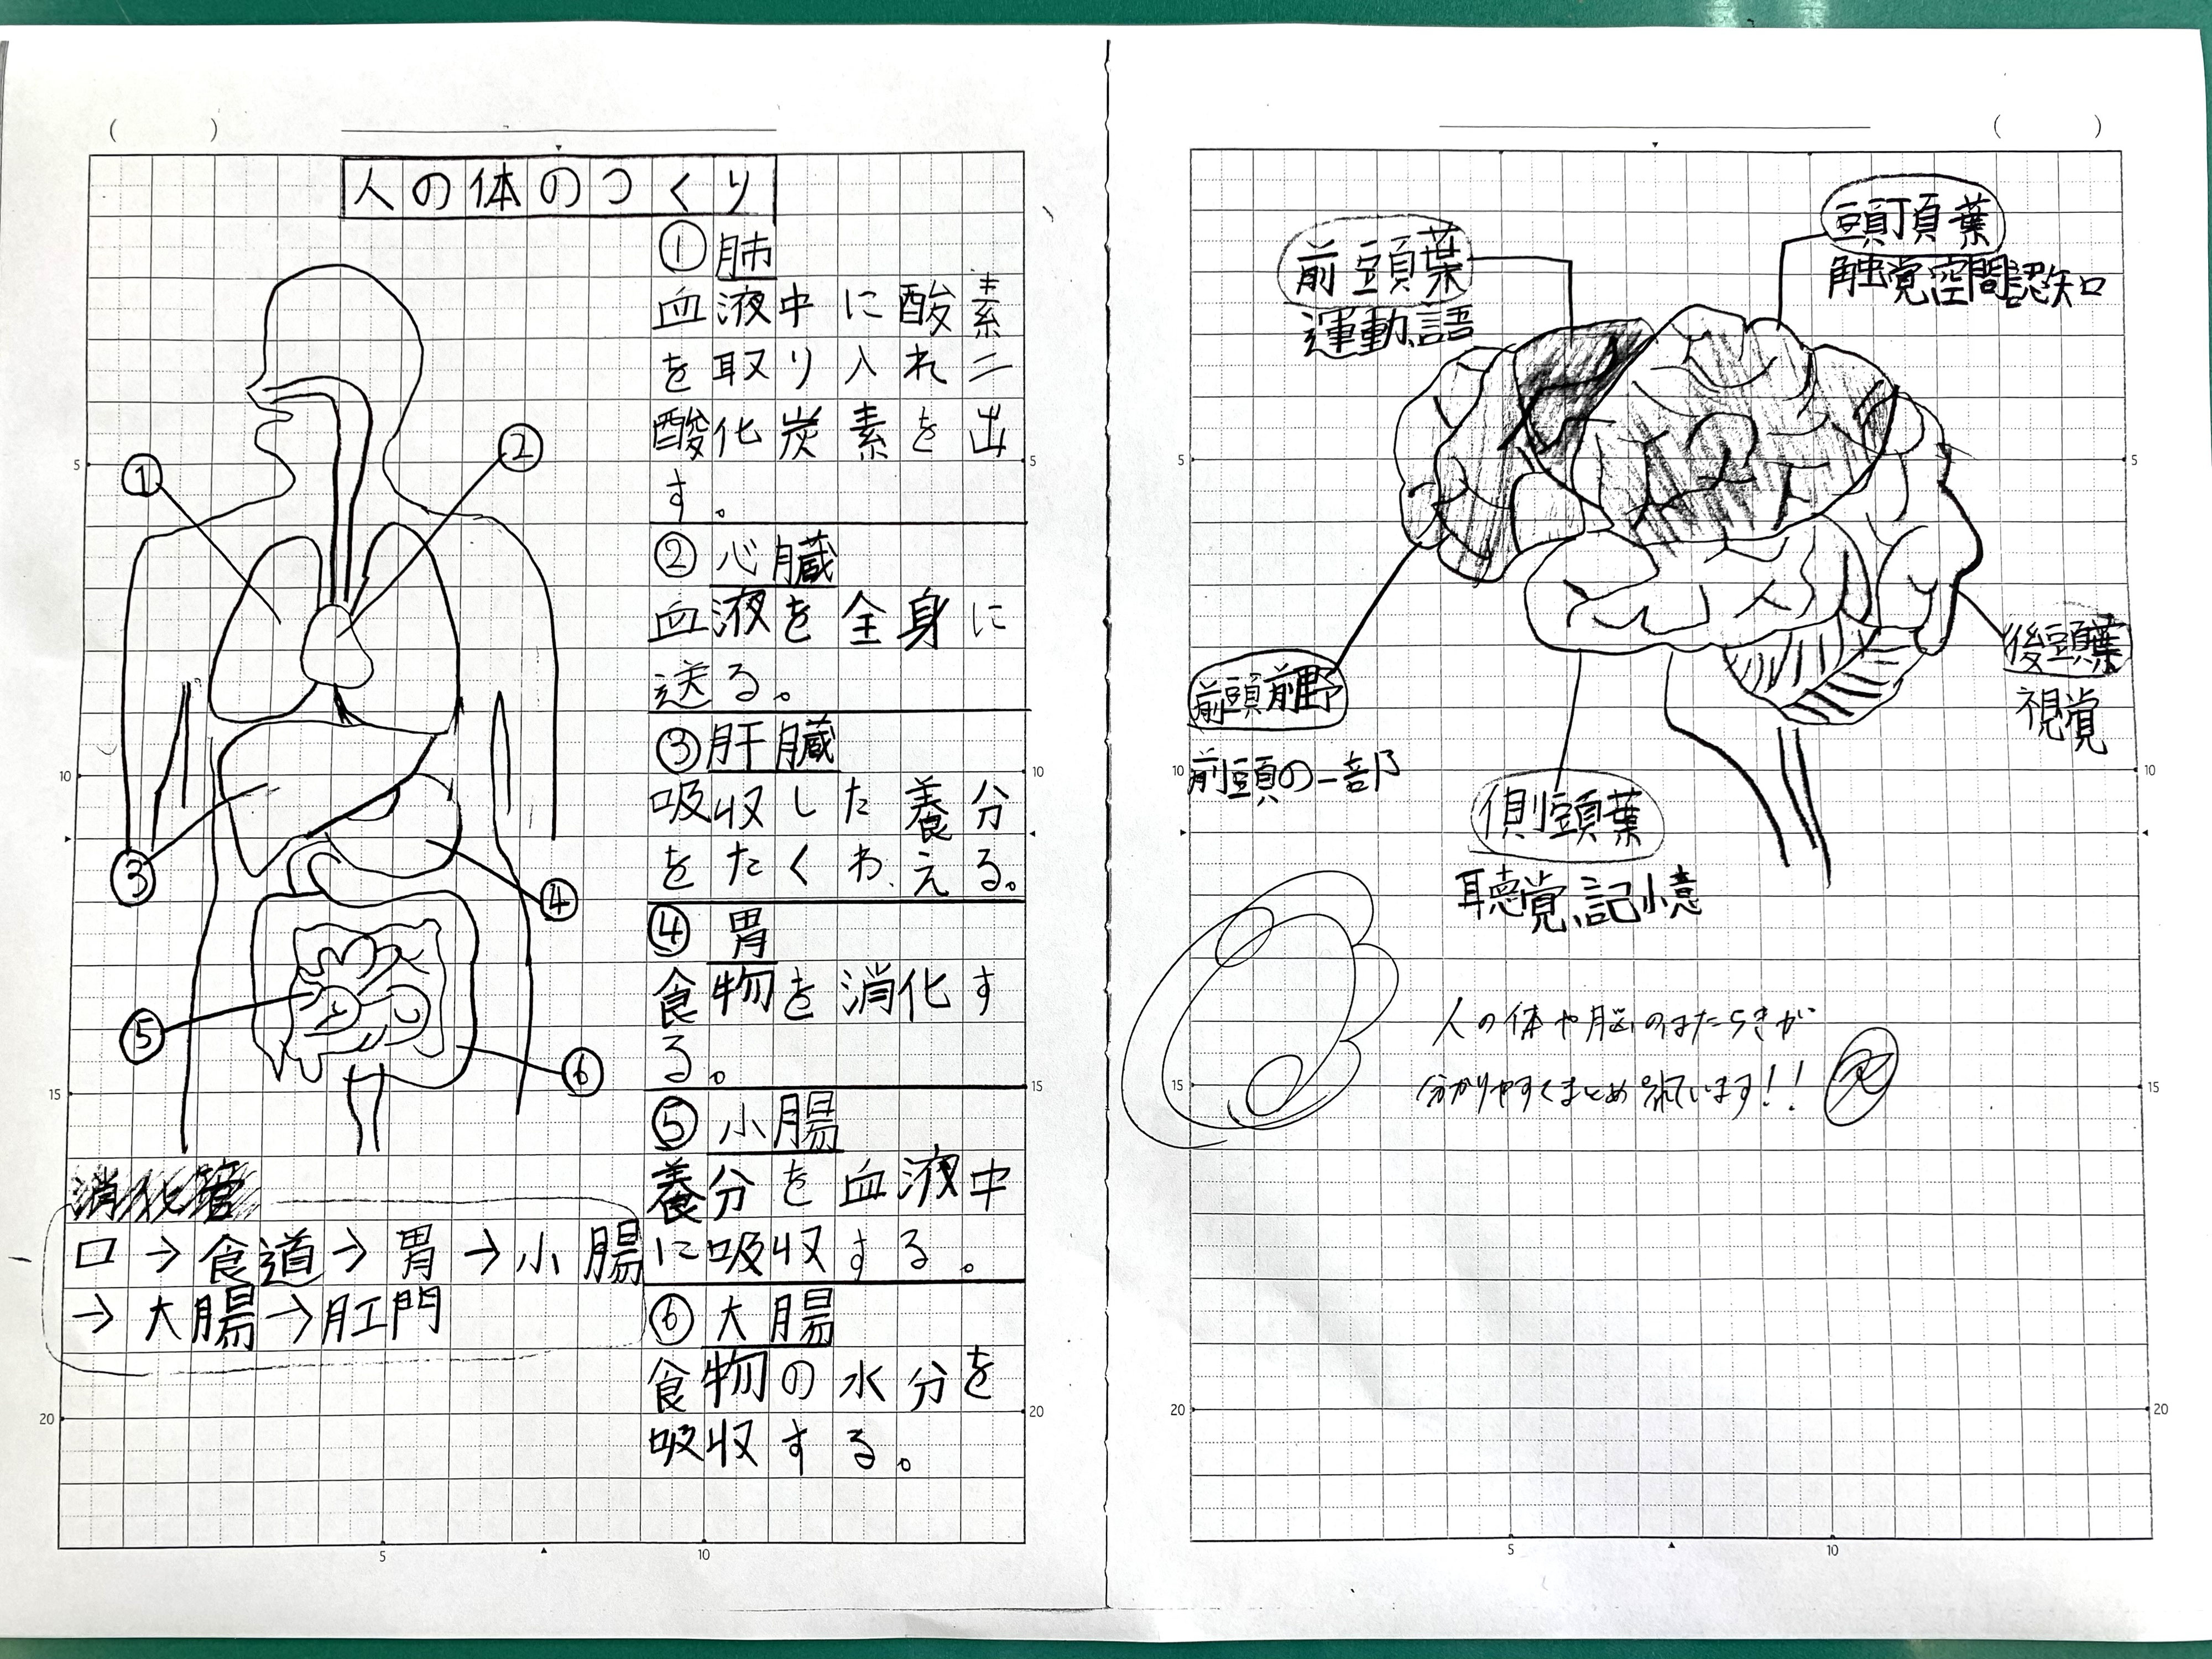 人の体のつくり
①肺
血液中に酸素
を取り入れ二
酸化炭素を出
す。
②心臓
血液を全身に
送る。
③肝臓
吸収した養分
をたくわえる。
④胃
食物を消化す
る。
⑤小腸
養分を血液中
に吸収する。
⑥大腸
食物の水分を
吸収する。
①
②
③
④
⑤
⑥
消化管
口→食道→胃→小腸
→大腸→肛門
5
10
15
20
5
10
15
20
5
10
前頭葉
運動、語
頭頂葉
触覚空間認知
前頭前野
前頭の一部
側頭葉
聴覚、記憶
後頭葉
視覚
人の体や脳のはたらきが
分かりやすくまとめられています!!
5
10
15
20
5
10
15
20
5
10